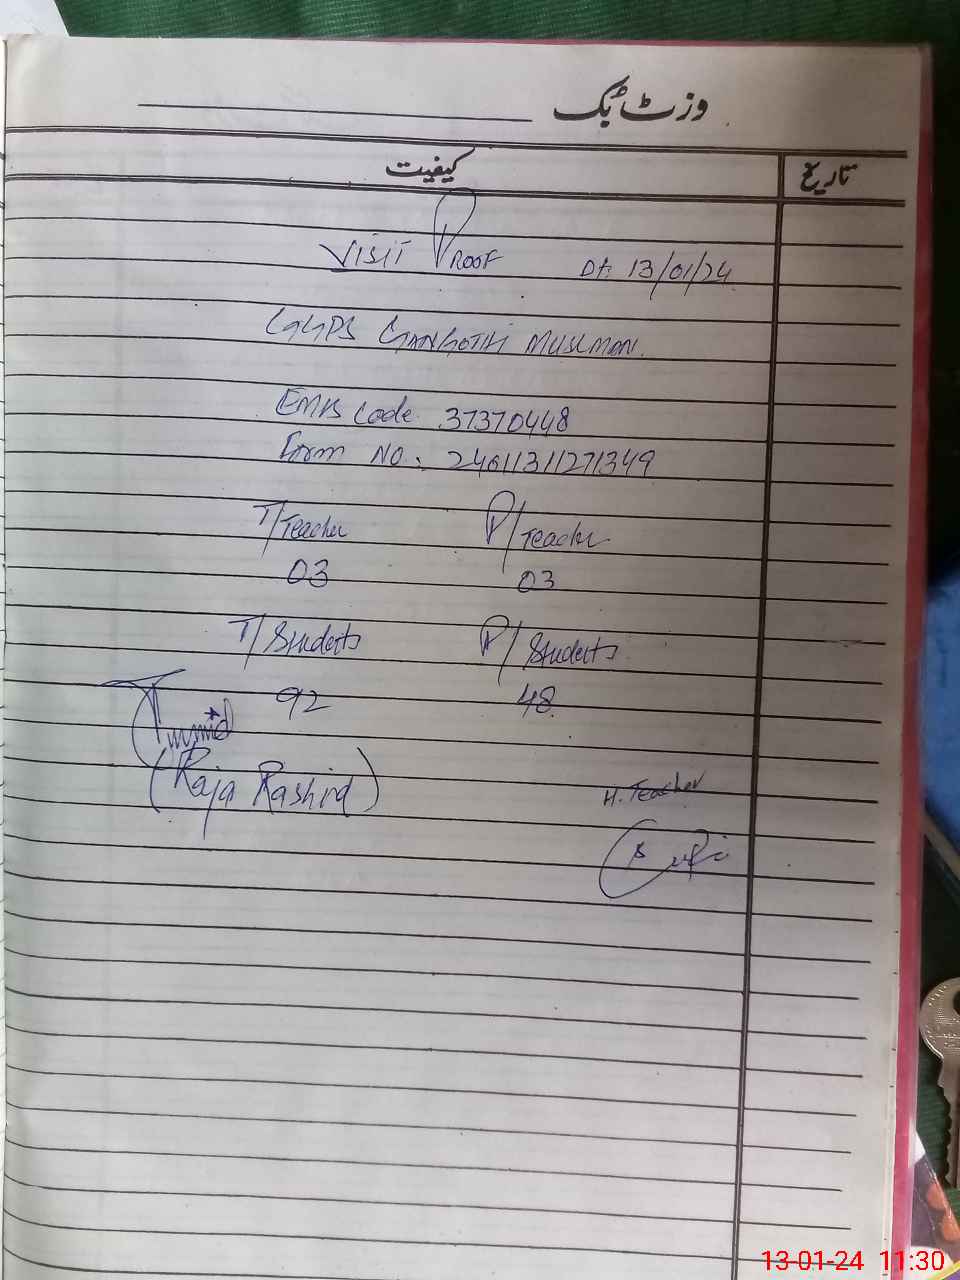 وزٹ بک
کیفیت تاریخ
VISIT PROOF Dt: 13/01/24
MUSLMAN
EMIS Code 37370448
Form NO: 24611311271349
T/Teacher P/Teacher
03 03
T/Students P/Students
92 48
(Raja Rashid)
H. Teacher
13-01-24 11:30